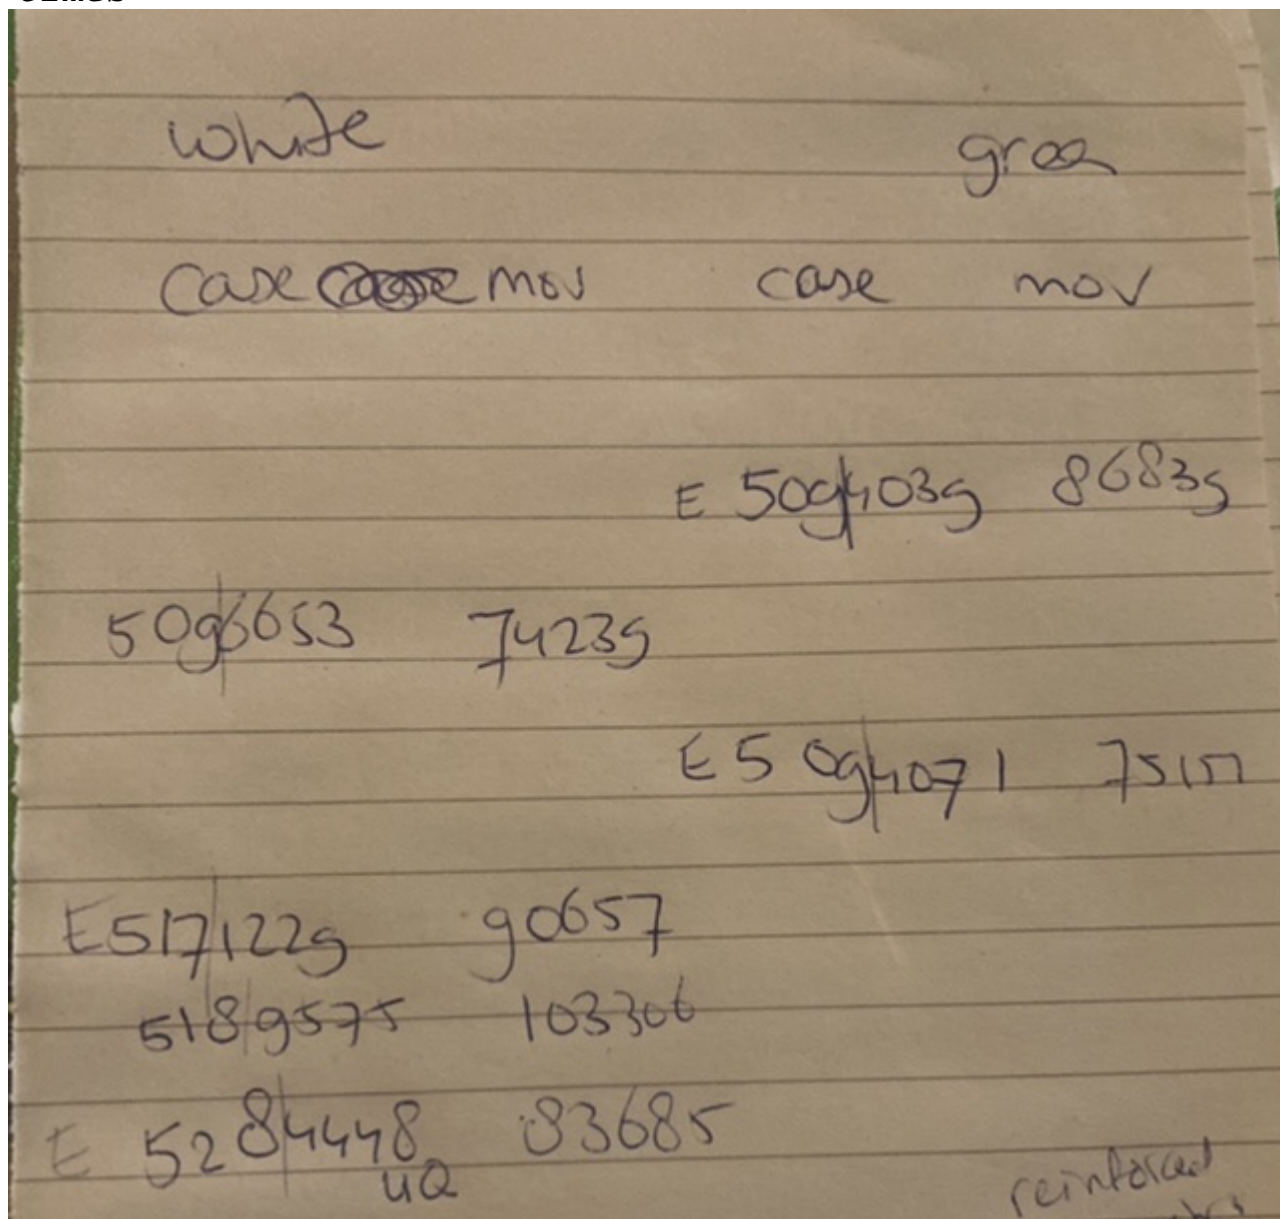 white green
case mov case mov
E 509|4039 86839
509|6653 74239
E 509|4071 75157
E517|1229 90657
518|9575 103306
E 528|4448 83685
reinforced